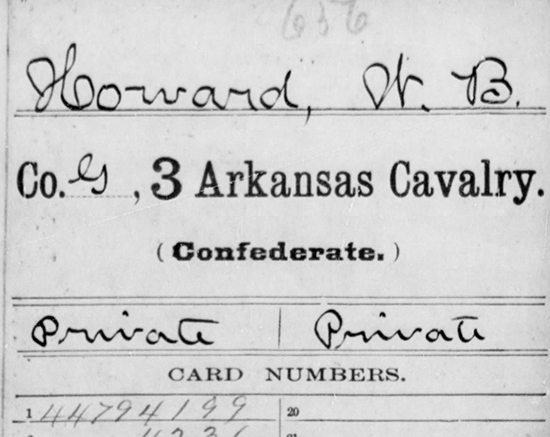 636
Howard, W. B.
Co. G, 3 Arkansas Cavalry.
(Confederate.)
Private | Private
CARD NUMBERS.
1 44794199 20
4236 21